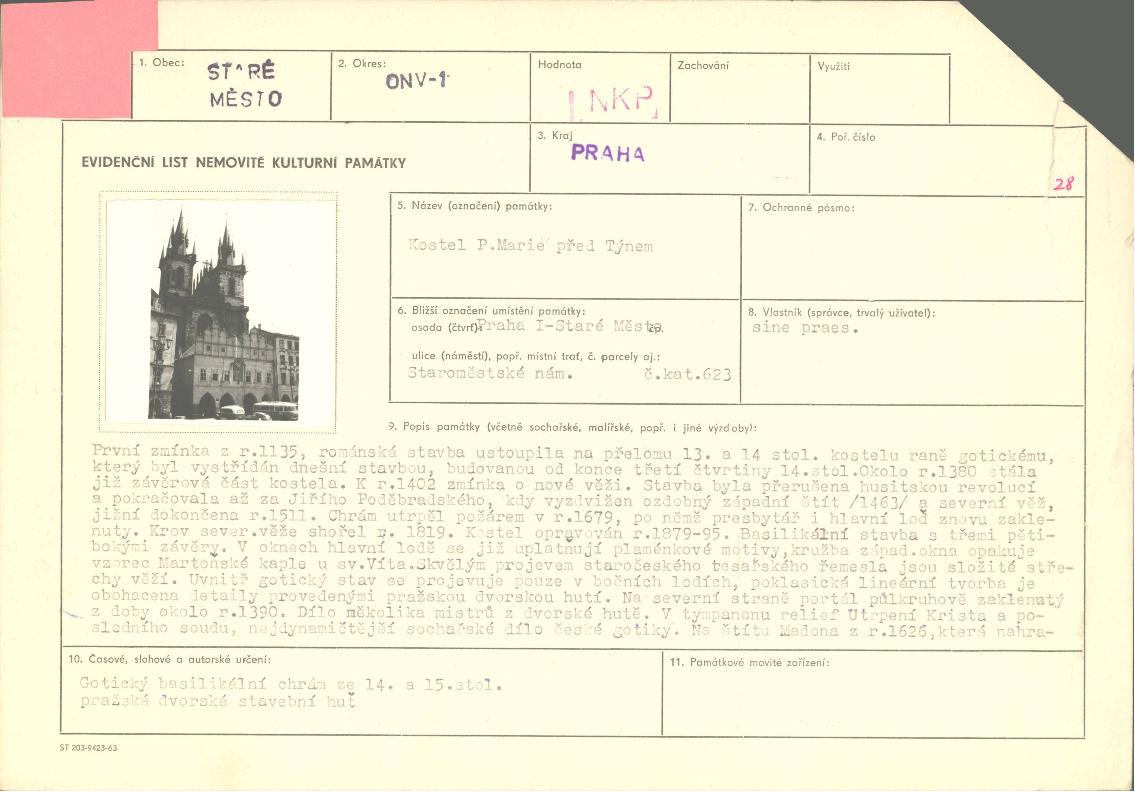 1. Obec:
STARÉ
MĚSTO
2. Okres:
ONV-1
Hodnota
NKP
Zachování
Využití
EVIDENČNÍ LIST NEMOVITÉ KULTURNÍ PAMÁTKY
3. Kraj
PRAHA
4. Poř. číslo
28
5. Název (označení) památky:
Kostel P.Marie před Týnem
7. Ochranné pásmo:
6. Bližší označení umístění památky:
osada (čtvrť): Praha I-Staré Město čp.
ulice (náměstí), popř. místní trať, č. parcely aj.:
Staroměstské nám. č.kat.623
8. Vlastník (správce, trvalý uživatel):
sine praes.
9. Popis památky (včetně sochařské, malířské, popř. i jiné výzdoby):
První zmínka z r.1135, románská stavba ustoupila na přelomu 13. a 14 stol. kostelu raně gotickému,
který byl vystřídán dnešní stavbou, budovanou od konce třetí čtvrtiny 14.stol.Okolo r.1380 stála
již závěrová část kostela. K r.1402 zmínka o nové věži. Stavba byla přerušena husitskou revolucí
a pokračovala až za Jiřího Poděbradského, kdy vyzdvižen ozdobný západní štít /1463/ a severní věž,
jižní dokončena r.1511. Chrám utrpěl požárem v r.1679, po němž presbytář i hlavní loď znovu zakle-
nuty. Krov sever.věže shořel r. 1819. Kostel opravován r.1879-95. Basilikální stavba s třemi pěti-
bokými závěry. V oknech hlavní lodě se již uplatnují plaménkové motivy,kružba západ.okna opakuje
vzorec Martonské kaple u sv.Víta.Skvělým projevem staročeského tesařského řemesla jsou složité stře-
chy věží. Uvnitř gotický stav se projevuje pouze v bočních lodích, poklasická lineární tvorba je
obohacena detaily provedenými pražskou dvorskou hutí. Na severní straně portál půlkruhově zaklenutý
z doby okolo r.1390. Dílo několika mistrů z dvorské hutě. V tympanonu relief Utrpení Krista a po-
sledního soudu, nejdynamičtější sochařské dílo české gotiky. Na štítu Madona z r.1626,která nahra-
10. Časové, slohové a autorské určení:
Gotický basilikální chrám ze 14. a 15.stol.
pražská dvorská stavební huť
11. Památkové movité zařízení:
ST 203-9423-63